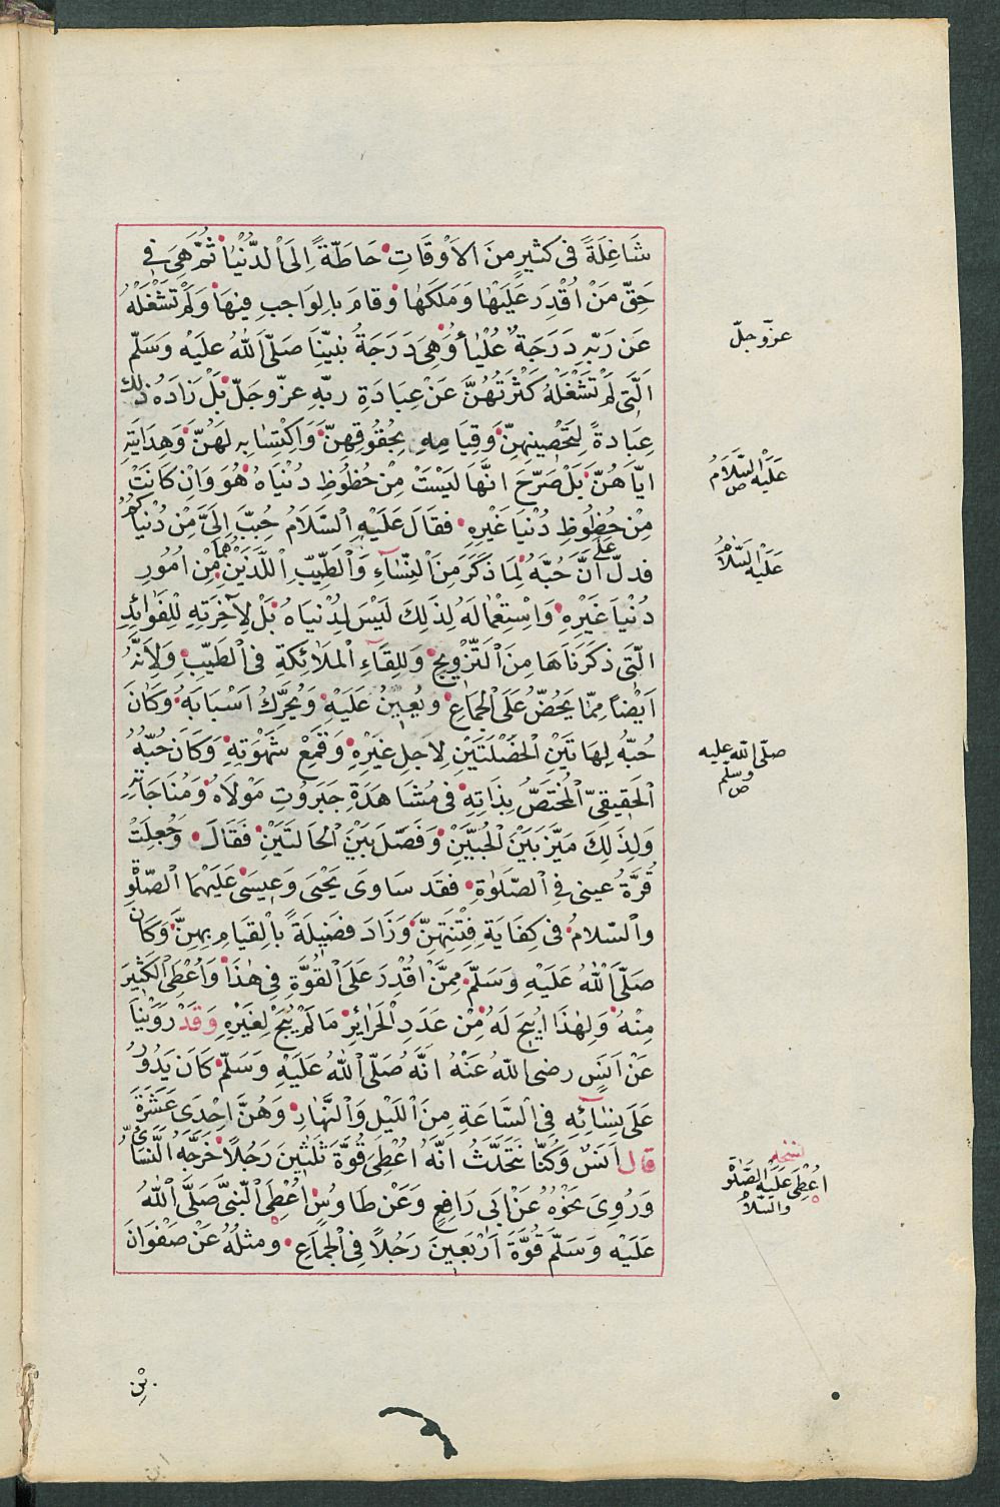 شَاغِلَةً فى كثيرٍ منَ الاَوْقَاتِ حَاطَّةً اِلَى الدُّنْيَا ثُمَّ هِىَ فِى
حَقِّ مَنْ اُقْدِرَ عَلَيْهَا وَمَلَكَهَا وَقامَ بِالوَاجبِ فِيهَا وَلَمْ تَشْغَلْهُ
عَن رَبِّهِ دَرَجَةٌ عُلْيَا وَهِىَ دَرَجَةُ نَبِيِّنَا صَلَّى اللهُ علَيْه وَسَلَّم
الَّتِى لَمْ تَشْغَلْهُ كَثْرَتُهُنَّ عَنْ عِبَادَةِ ربِّهِ عزّ وجلّ بَلْ زَادَهُ ذلِكَ
عِبَادةً لِتَحْصِينِهِنَّ وَقِيَامِهِ بِحُقُوقِهِنَّ وَاِكْتِسَابِهِ لَهُنَّ وَهِدَايَتِهِ
ايَّاهُنَّ بَلْ صَرَّحَ انَّهَا لَيْسَتْ مِنْ حُظُوظِ دُنْيَاهُ هُوَ وَاِنْ كَانَتْ
مِنْ حُظُوظِ دُنْيَا غَيْرِهِ فقَالَ عَلَيْهِ السَّلَامُ حُبِّبَ اِلَىَّ مِنْ دُنْيَاكُمْ
فدلّ علَى اَنَّ حُبَّهُ لِمَا ذَكَرَ مِنَ النِّسَآءِ وَالطِّيبِ اللَّذَيْنِ هما مِنْ اُمُورِ
دُنْيَا غَيْرِهِ وَاسْتِعْمَالَهُ لِذَلِكَ لَيْسَ لِدُنْيَاهُ بَلْ لِآخِرَتِهِ لِلْفَوَائِدِ
الَّتِى ذكَرْنَاهَا مِنَ التَّزْوِيجِ وَلِلِقَآءِ الْمَلَائِكَةِ فى الطّيبِ وَلِاَنَّهُ
اَيْضًا مِمَّا يَحُضُّ عَلَى الْجِمَاعِ وَيُعِينُ عَلَيْهِ وَيُحَرِّكُ اَسْبَابَهُ وَكَانَ
حُبُّهُ لِهَاتَيْنِ الْخَصْلَتَيْنِ لِاَجلِ غَيْرِهِ وَقَمْعِ شَهْوَتِهِ وَكَانَ حُبُّهُ
الْحَقِيقِىُّ الْمُخْتَصُّ بِذَاتِهِ فى مُشَاهَدَةِ جَبَرُوتِ مَوْلَاهُ وَمُنَاجَاتِهِ
وَلِذَلِكَ مَيَّزَ بَيْنَ الْحُبَّيْنِ وَفَصَّلَ بَيْنَ الْحَالَتَيْنِ فَقَالَ وَجُعِلَتْ
قُرَّةُ عينى فِى الصَّلَوٰةِ فقَد سَاوَى يَحْيَى وَعِيسَى عَلَيْهِمَا الصَّلوٰةِ
والسَّلامُ فى كِفَايَةِ فِتْنَتِهِنَّ وَزَادَ فضِيلَةً بالقِيَامِ بِهِنَّ وَكَانَ
صَلَّى اللهُ عَلَيْهِ وَسَلَّمَ مِمَّنْ اُقْدِرَ عَلَى القُوَّةِ فِى هٰذَا وَاُعْطِىَ الْكَثِيرَ
مِنْهُ وَلِهٰذَا اُبِيحَ لَهُ مِنْ عَدَدِ الْحَرَائِرِ مَا لَمْ يُبَحْ لِغَيْرِهِ وَقَدْ رَوَيْنَا
عَنْ اَنَسٍ رضى اللهُ عَنْهُ انَّهُ صَلَّى اللهُ عَلَيْهِ وَسَلَّم كَانَ يَدُورُ
عَلَى نِسَائِه فى السَّاعَةِ مِنَ اللَّيْلِ وَالنَّهَارِ وَهُنَّ اِحْدَى عَشْرَةَ
قال اَنَسٌ وَكُنَّا نَتَحَدَّثُ انَّهُ اُعْطِىَ قُوَّةَ ثَلٰثِينَ رَجُلًا خَرَّجَهُ النَّسَائِىُّ
وَرُوِىَ نَحْوُهُ عَنْ اَبى رَافِعٍ وَعَنْ طَاوُسٍ اُعْطِىَ النَّبِىُّ صَلَّى اللهُ
عَلَيْهِ وَسَلَّمَ قُوَّةَ اَرْبَعِينَ رَجُلًا فِى الْجِمَاعِ ومثلُهُ عَنْ صَفْوَانَ
عزّ وجلّ
عَلَيْهِ السَّلَامُ
ص
عَلَيْهِ السَّلامُ
صلّى الله عليه
وسلّم
ص
نسخه
اُعْطِىَ عَلَيْهِ الصَّلوٰةُ
والسّلامُ
بْنِ